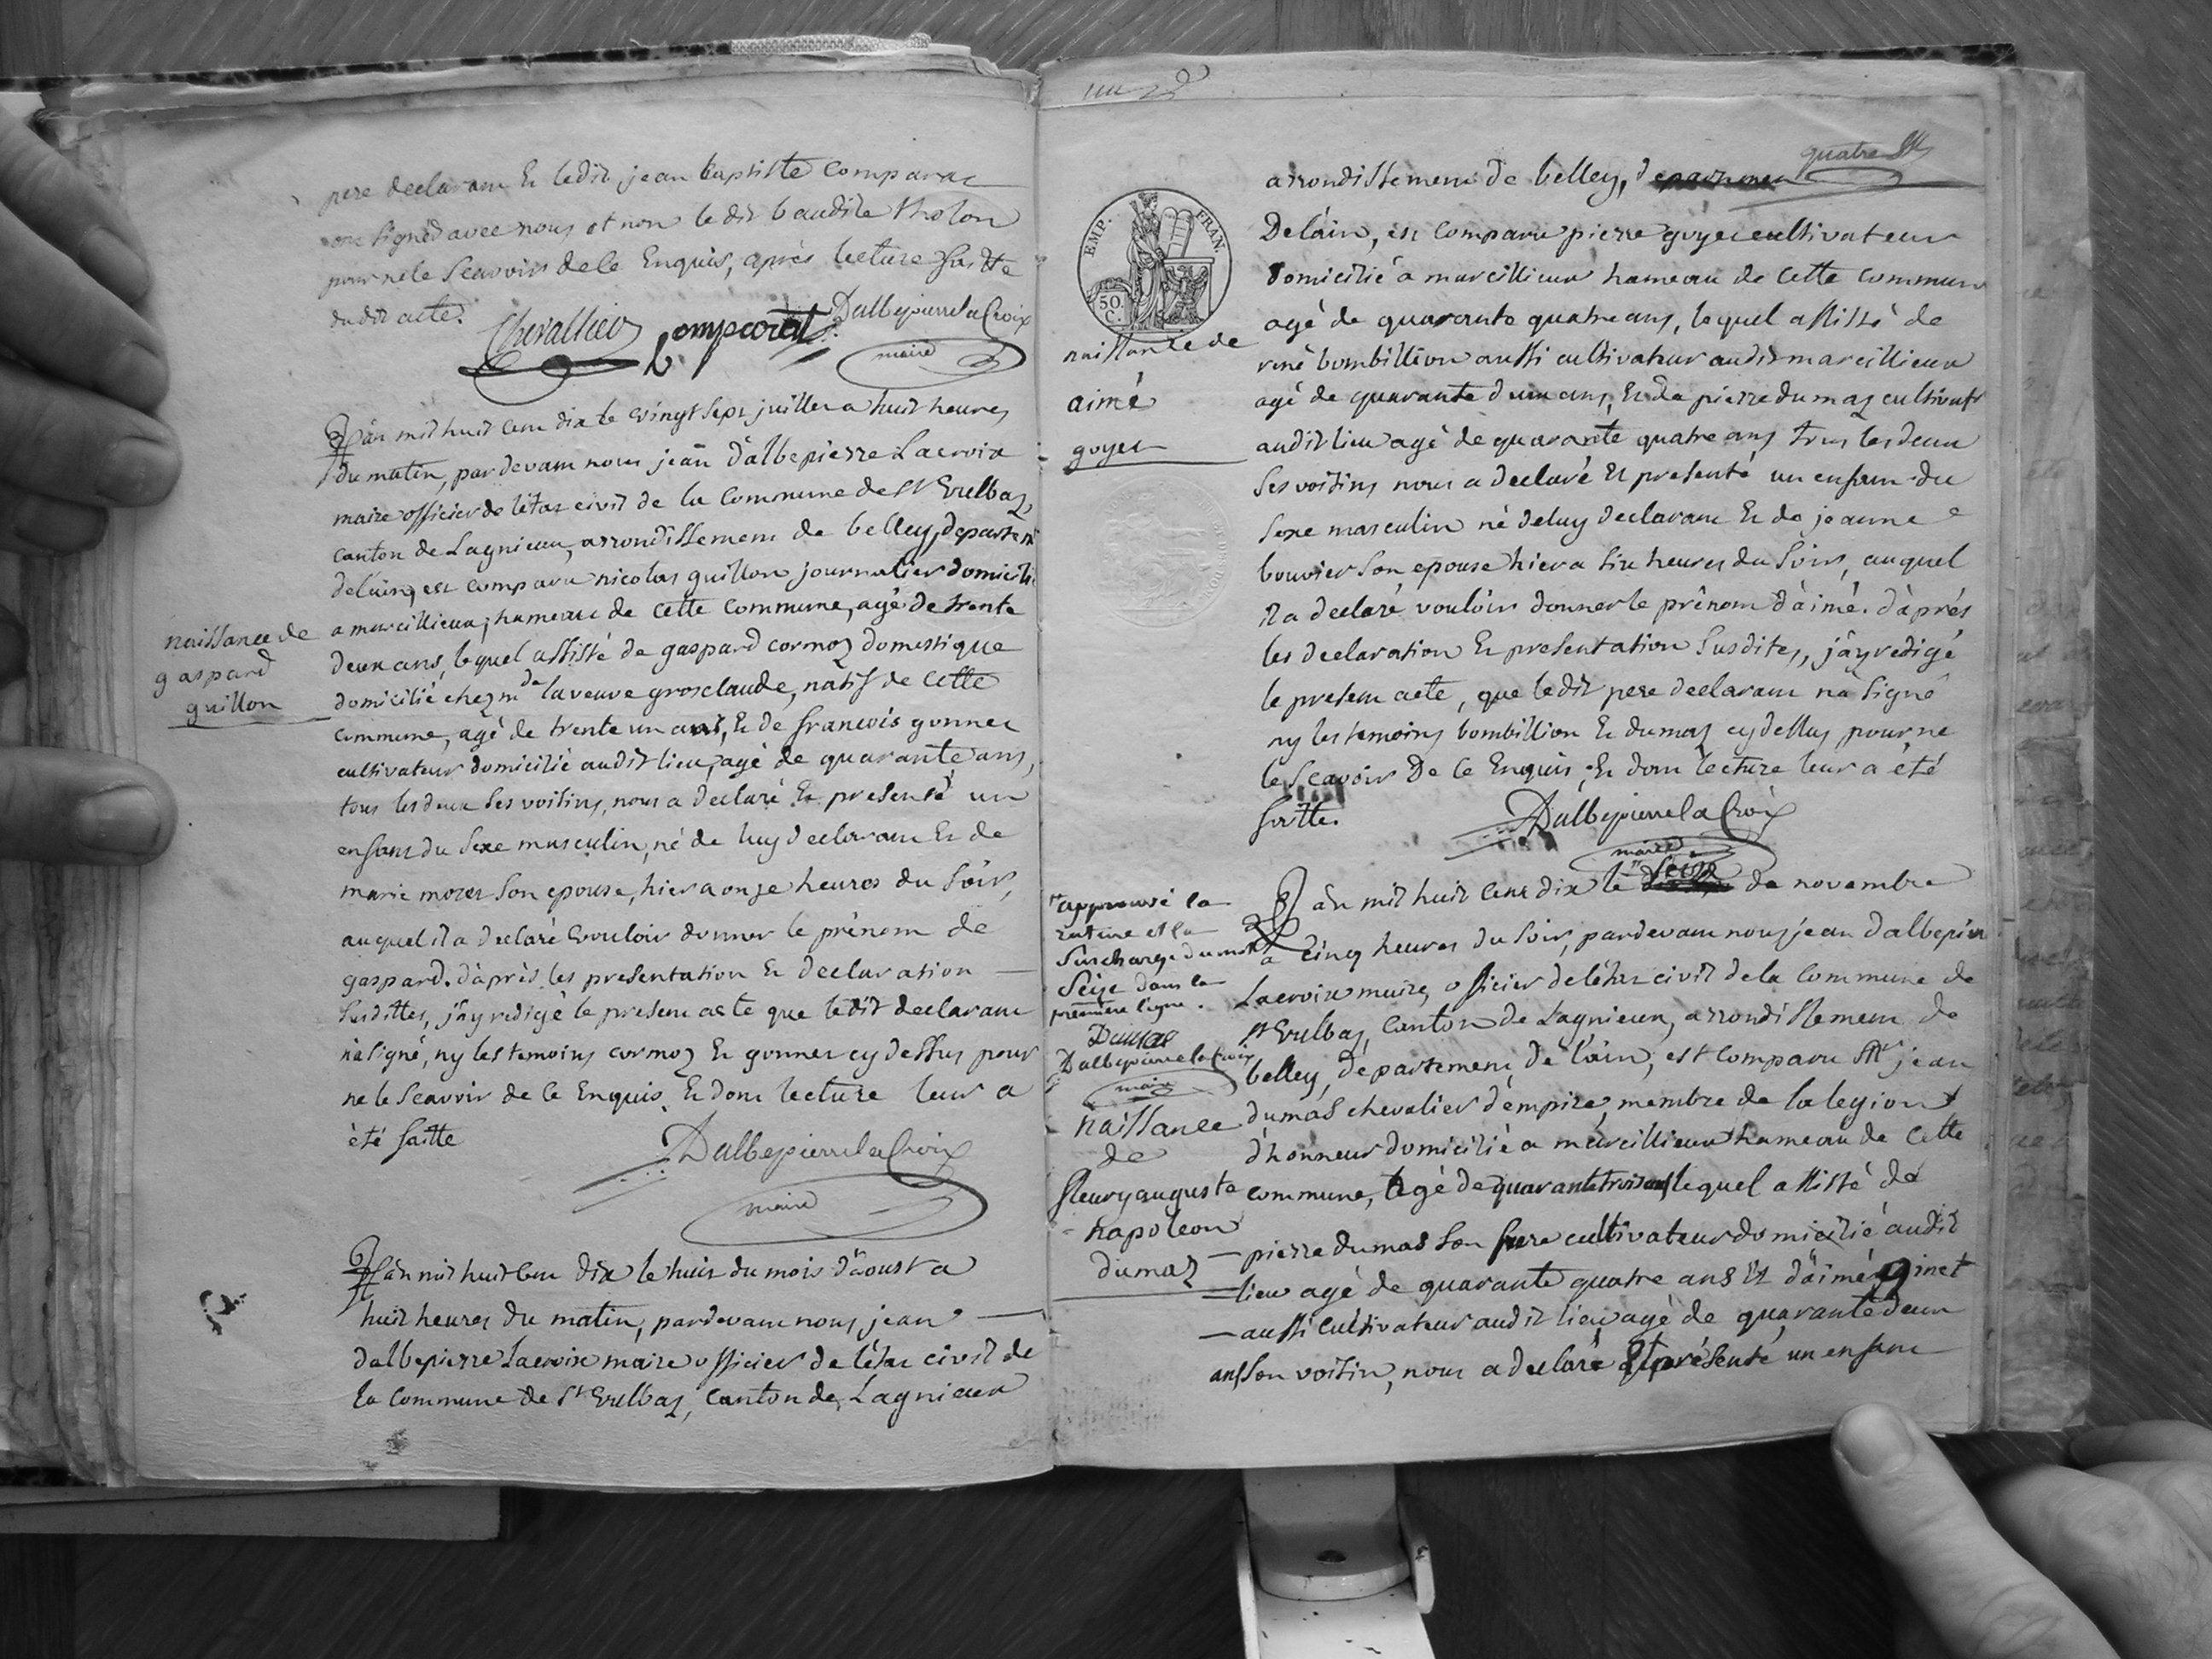 pere declarant Et ledit jean baptiste comparat
ont signéd avec nous et non le dit baudile tholon
pour ne le Scavoir de ce Enquis, après lecture faitte
dudit acte.
Chevallier Comparat Dalbepierre laCroix
maire
L'an mil huit cent dix le vingt sept juillet a huit heures
du matin, pardevant nous jean d'albepierre Lacroix
maire officier de l'état civil de la Commune de St Vulbaz,
canton de Lagnieu, arrondissement de belley, departemt
de l'ain, est comparu nicolas guillon journalier domicilié
a marcillieux, hameau de cette commune, agé de trente
deux ans, lequel assisté de gaspard cormoz domestique
domicilié chez mde la veuve grosclaude, natif de cette
commune, agé de trente un ans, Et de francois gonnet
cultivateur domicilié audit lieu, agé de quarante ans,
tous les deux ses voisins, nous a declaré Et presenté un
enfant du sexe masculin, né de luy declarant Et de
marie moret son epouse, hier a onze heures du soir,
auquel il a declaré vouloir donner le prénom de
gaspard. d'après les presentation Et declaration
susdittes, j'ay redigé le present acte que le dit declarant
n'a signé, ny les temoins cormoz Et gonnet cy dessus pour
ne le Scavoir de ce Enquis. Et dont lecture leur a
été faitte
Dalbepierre laCroix
maire
naissance de
gaspard
guillon
L'an mil huit cent dix le huit du mois d'aoust a
huit heures du matin, pardevant nous jean
dalbepierre Lacroix maire officier de l'état civil de
la commune de St Vulbaz, canton de Lagnieux
quatre
arrondissement de belley, departement
De l'ain, est comparu pierre goyet cultivateur
domicilié a marcillieux hameau de cette commune
agé de quarante quatre ans, lequel assisté de
réné bombillion aussi cultivateur audit marcillieux
agé de quarante deux ans, Et de pierre dumaz cultivatr
audit lieu agé de quarante quatre ans tous les deux
ses voisins nous a declaré Et presenté un enfant du
sexe masculin né de luy declarant Et de jeanne
bouvier son epouse hier a six heures du soir, auquel
il a declaré vouloir donner le prénom d'aimé. d'après
les declaration Et presentation susdites, j'ay redigé
le present acte, que le dit pere declarant n'a signé
ny les temoins bombillion Et dumaz cy dessus, pour ne
le Scavoir De ce Enquis. Et dont lecture leur a été
faitte.
Dalbepierre laCroix
maire
EMP. FRAN.
50. C.
naissance de
aimé
goyet
L'an mil huit cent dix le Seize de novembre
a cinq heures du soir, pardevant nous jean dalbepierre
Lacroix maire, officier de l'état civil de la commune de
St Vulbaz, canton de Lagnieu, arrondissement de
belley, département de l'ain, est comparu Mr jean
dumas chevalier d'empire, membre de la legion
d'honneur domicilié a marcillieux hameau de cette
commune, agé de quarante trois ans lequel assisté de
pierre dumas son frere cultivateur domicilié audit
lieu agé de quarante quatre ans Et d'aimé ginet
aussi cultivateur audit lieu, agé de quarante deux
ans son voisin, nous a declaré Et présenté un enfant
approuvé la
rature et la
surcharge du mot
Seize dans la
premiere ligne.
Dumas
Dalbepierre la Croix
maire
naissance
de
fleury auguste
napoleon
dumaz